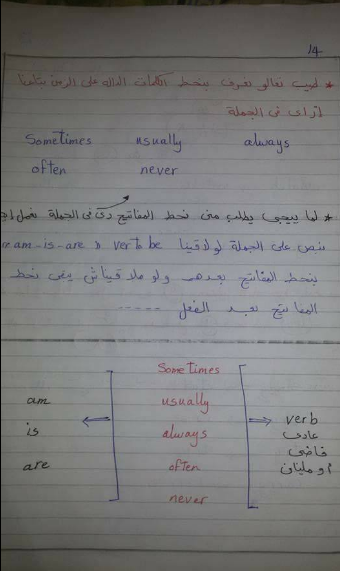 14
* طيب تعالو نعرف بنحط الكلمات الداله على الزمن بتاعنا
ازاى فى الجملة
Sometimes usually always
often never
* لما ييجى يطلب منى نحط المفاتيح دى فى الجملة نعمل
نبص على الجملة لو لاقينا verb to be (am-is-are
بنحط المفاتيح بعدهم ولو ملاقيناش يبقى نحط
المفاتيح الفعل -----
Sometimes
am usually verb
is always عادى
فاضى
are often أو مليان
never